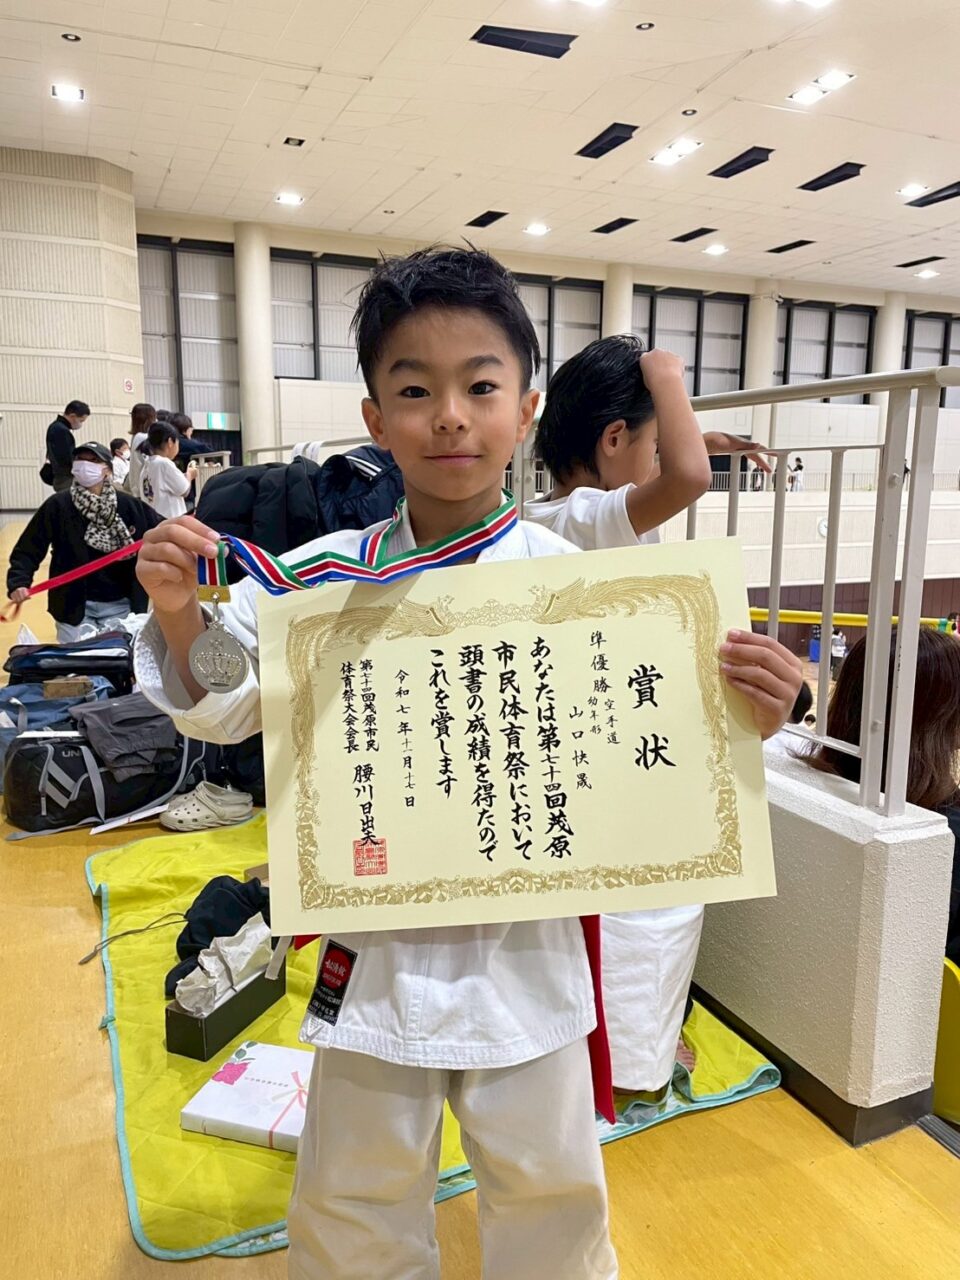 賞状
準優勝 空手道
幼年形
山口快晟
あなたは第七十四回茂原
市民体育祭において
頭書の成績を得たので
これを賞します
令和七年十一月十七日
第七十四回茂原市民
体育祭大会会長 腰川日出夫
UN